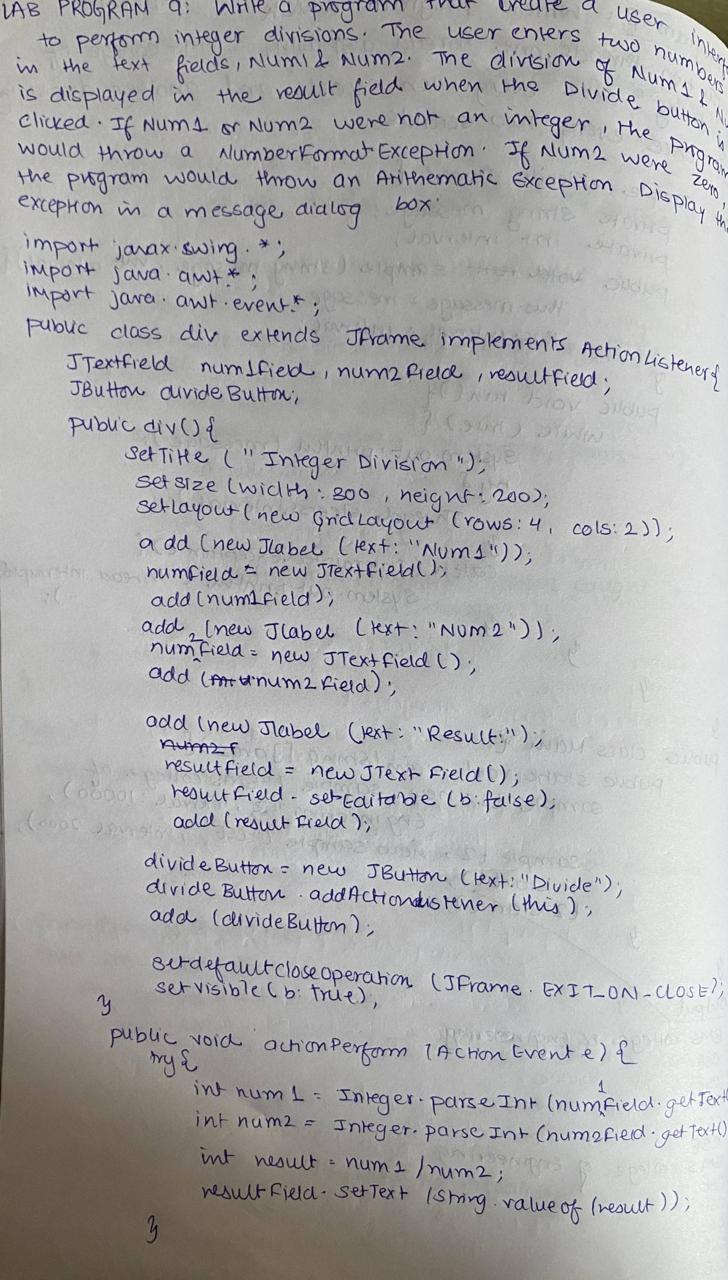 LAB PROGRAM 9: Write a program that create a user
to perform integer divisions. The user enters two numbers
in the text fields, Num1 & Num2. The division of Num1 &
is displayed in the result field when the Divide button
clicked. If Num1 or Num2 were not an integer, the program
would throw a NumberFormatException. If Num2 were zero,
the program would throw an Arithematic Exception Display
exception in a message dialog box:
import javax.swing.*;
import java.awt.*;
import java.awt.event.*;
public class div extends JFrame implements ActionListener{
JTextfield num1field, num2field, resultfield;
JButton divideButton;
public div(){
setTitle ("Integer Division");
setsize (width: 300, height: 200);
setLayout (new GridLayout (rows: 4, cols: 2));
add (new Jlabel (text: "Num1"));
numfield = new JTextfield();
add (num1field);
add (new Jlabel (text: "Num2"));
num2field = new JTextfield ();
add (num2field);
add (new Jlabel (text: "Result:");
num2f
resultfield = new JText field();
resultfield. setEditable (b: false);
add (resultfield);
divideButton = new JButton (text: "Divide");
divide Button .addActionListener (this);
add (divideButton);
setdefaultcloseoperation (JFrame. EXIT_ON_CLOSE);
setvisible (b: true);
}
public void actionPerform (Action Event e) {
try{
int num1 = Integer.parseInt (num1field.getText(
int num2 = Integer.parseInt (num2field.getText()
int result = num1 /num2;
resultfield. setText (string. valueof (result));
}